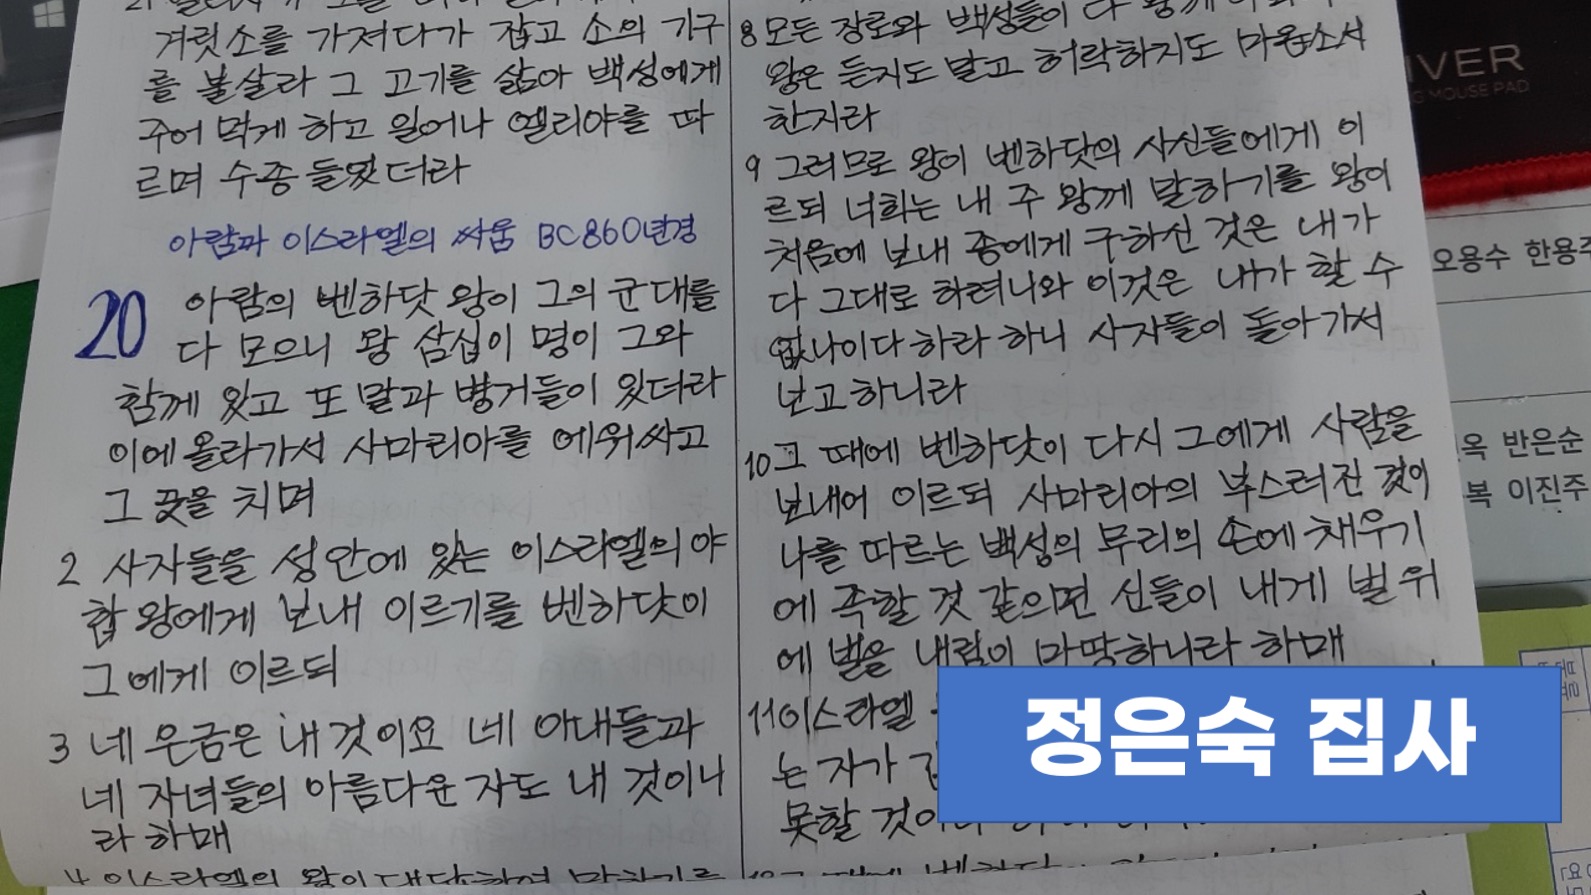 겨릿소를 가져다가 잡고 소의 기구
를 불살라 그 고기를 삶아 백성에게
주어 먹게 하고 일어나 엘리야를 따
르며 수종 들었더라
아람과 이스라엘의 싸움 BC860년경
20 아람의 벤하닷 왕이 그의 군대를
다 모으니 왕 삼십이 명이 그와
함께 있고 또 말과 병거들이 있더라
이에 올라가서 사마리아를 에워싸고
그 곳을 치며
2 사자들을 성 안에 있는 이스라엘의 아
합 왕에게 보내 이르기를 벤하닷이
그에게 이르되
3 네 은금은 내 것이요 네 아내들과
네 자녀들의 아름다운 자도 내 것이니
라 하매
4 이스라엘의 왕이 대답하여 말하기를
8 모든 장로와 백성들이 다 왕께
왕은 듣지도 말고 허락하지도 마옵소서
한지라
9 그러므로 왕이 벤하닷의 사신들에게 이
르되 너희는 내 주 왕께 말하기를 왕이
처음에 보내 종에게 구하신 것은 내가
다 그대로 하려니와 이것은 내가 할 수
없나이다 하라 하니 사자들이 돌아가서
보고하니라
10 그 때에 벤하닷이 다시 그에게 사람을
보내어 이르되 사마리아의 부스러진 것이
나를 따르는 백성의 무리의 손에 채우기
에 족할 것 같으면 신들이 내게 벌 위
에 벌을 내림이 마땅하니라 하매
11 이스라엘
는 자가
못할 것이라
IVER
MOUSE PAD
오용수 한용주
옥 반은순
복 이진주
정은숙 집사